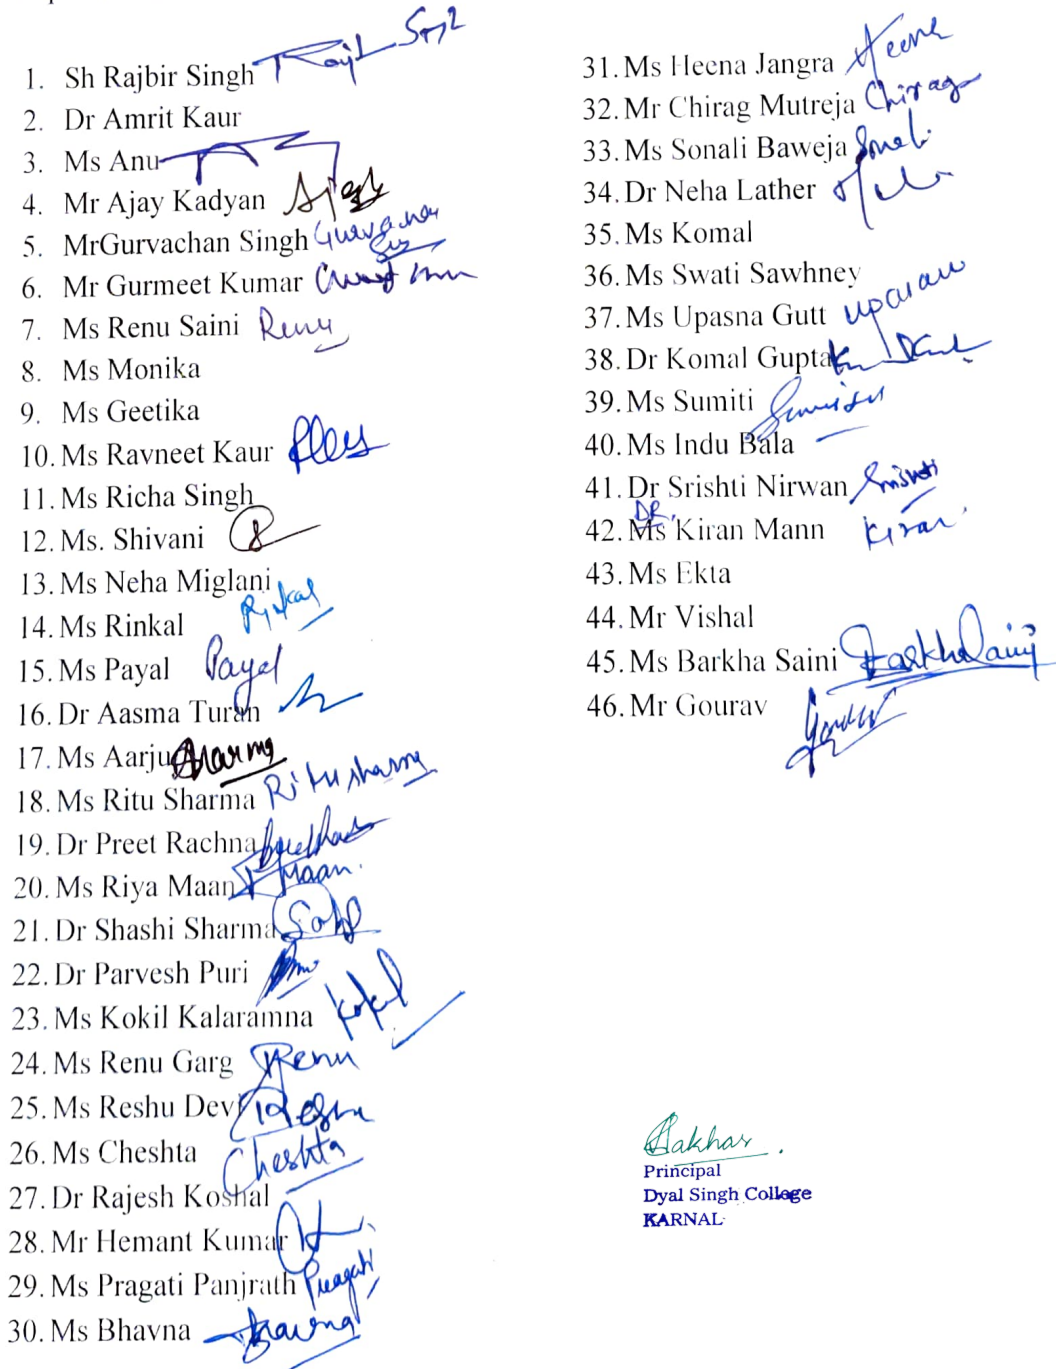 1. Sh Rajbir Singh
2. Dr Amrit Kaur
3. Ms Anu
4. Mr Ajay Kadyan Ajay
5. MrGurvachan Singh Gurvachan
6. Mr Gurmeet Kumar
7. Ms Renu Saini Renu
8. Ms Monika
9. Ms Geetika
10. Ms Ravneet Kaur
11. Ms Richa Singh
12. Ms. Shivani
13. Ms Neha Miglani
14. Ms Rinkal Rinkal
15. Ms Payal Payal
16. Dr Aasma Turan
17. Ms Aarju Sharma
18. Ms Ritu Sharma Ritu sharma
19. Dr Preet Rachna
20. Ms Riya Maan Maan.
21. Dr Shashi Sharma
22. Dr Parvesh Puri
23. Ms Kokil Kalaramna Kokil
24. Ms Renu Garg Renu
25. Ms Reshu Devi Reshu
26. Ms Cheshta Cheshta
27. Dr Rajesh Koshal
28. Mr Hemant Kumar
29. Ms Pragati Panjrath Pragati
30. Ms Bhavna Bhavna
31. Ms Heena Jangra Heena
32. Mr Chirag Mutreja Chirag
33. Ms Sonali Baweja Sonali
34. Dr Neha Lather
35. Ms Komal
36. Ms Swati Sawhney
37. Ms Upasna Gutt Upasana
38. Dr Komal Gupta
39. Ms Sumiti Sumiti
40. Ms Indu Bala
41. Dr Srishti Nirwan Srishti
DR.
42. Ms Kiran Mann Kiran
43. Ms Ekta
44. Mr Vishal
45. Ms Barkha Saini Barkha Saini
46. Mr Gourav Gourav
Principal
Dyal Singh College
KARNAL